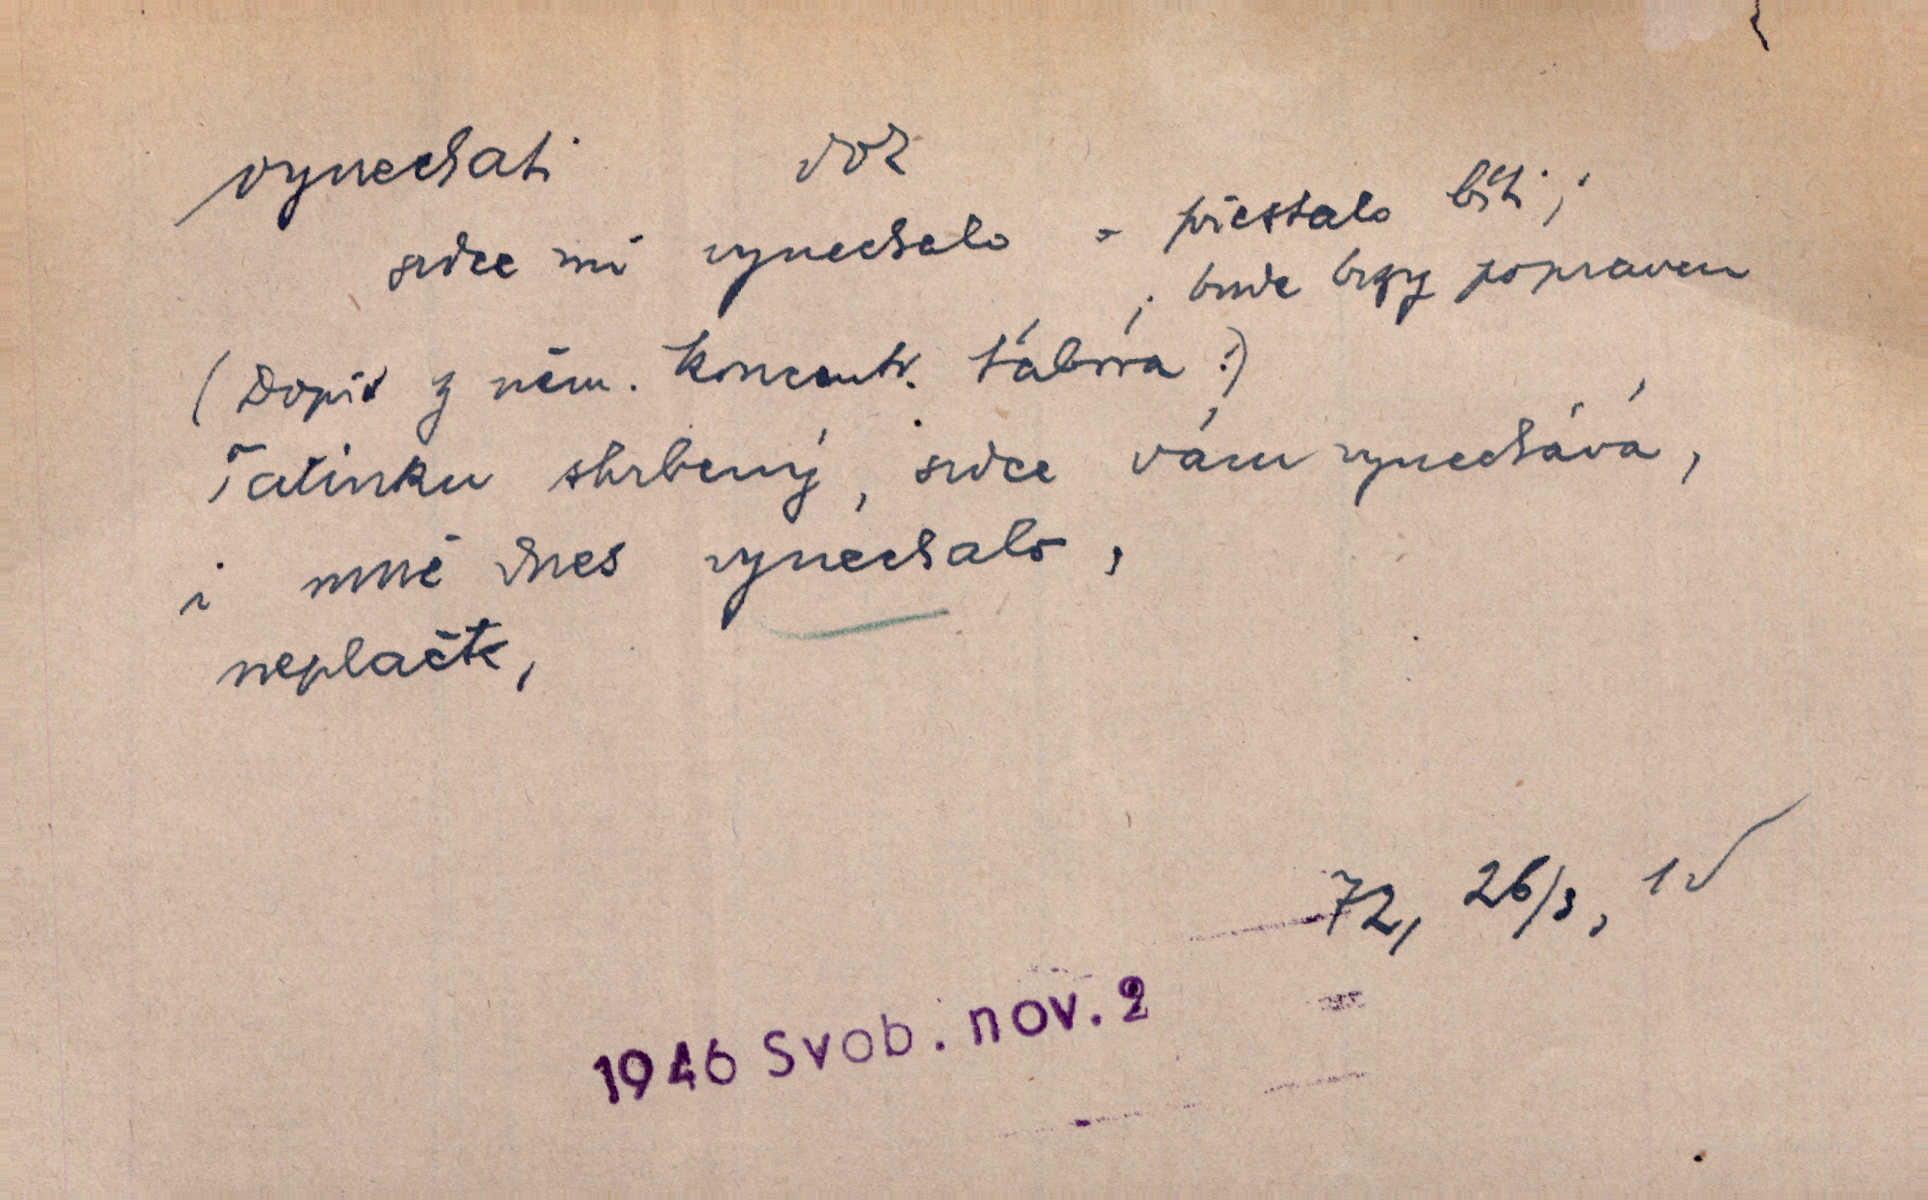 vynechati doz
srdce mi vynechalo - přestalo bíti;
; bude brzy popraven
(Dopis z něm. koncentr. tábora:)
Tatínku shrbený, srdce vám vynechává,
i mně dnes vynechalo,
neplačte,
72, 26/3, 1
1946 Svob. nov. 2